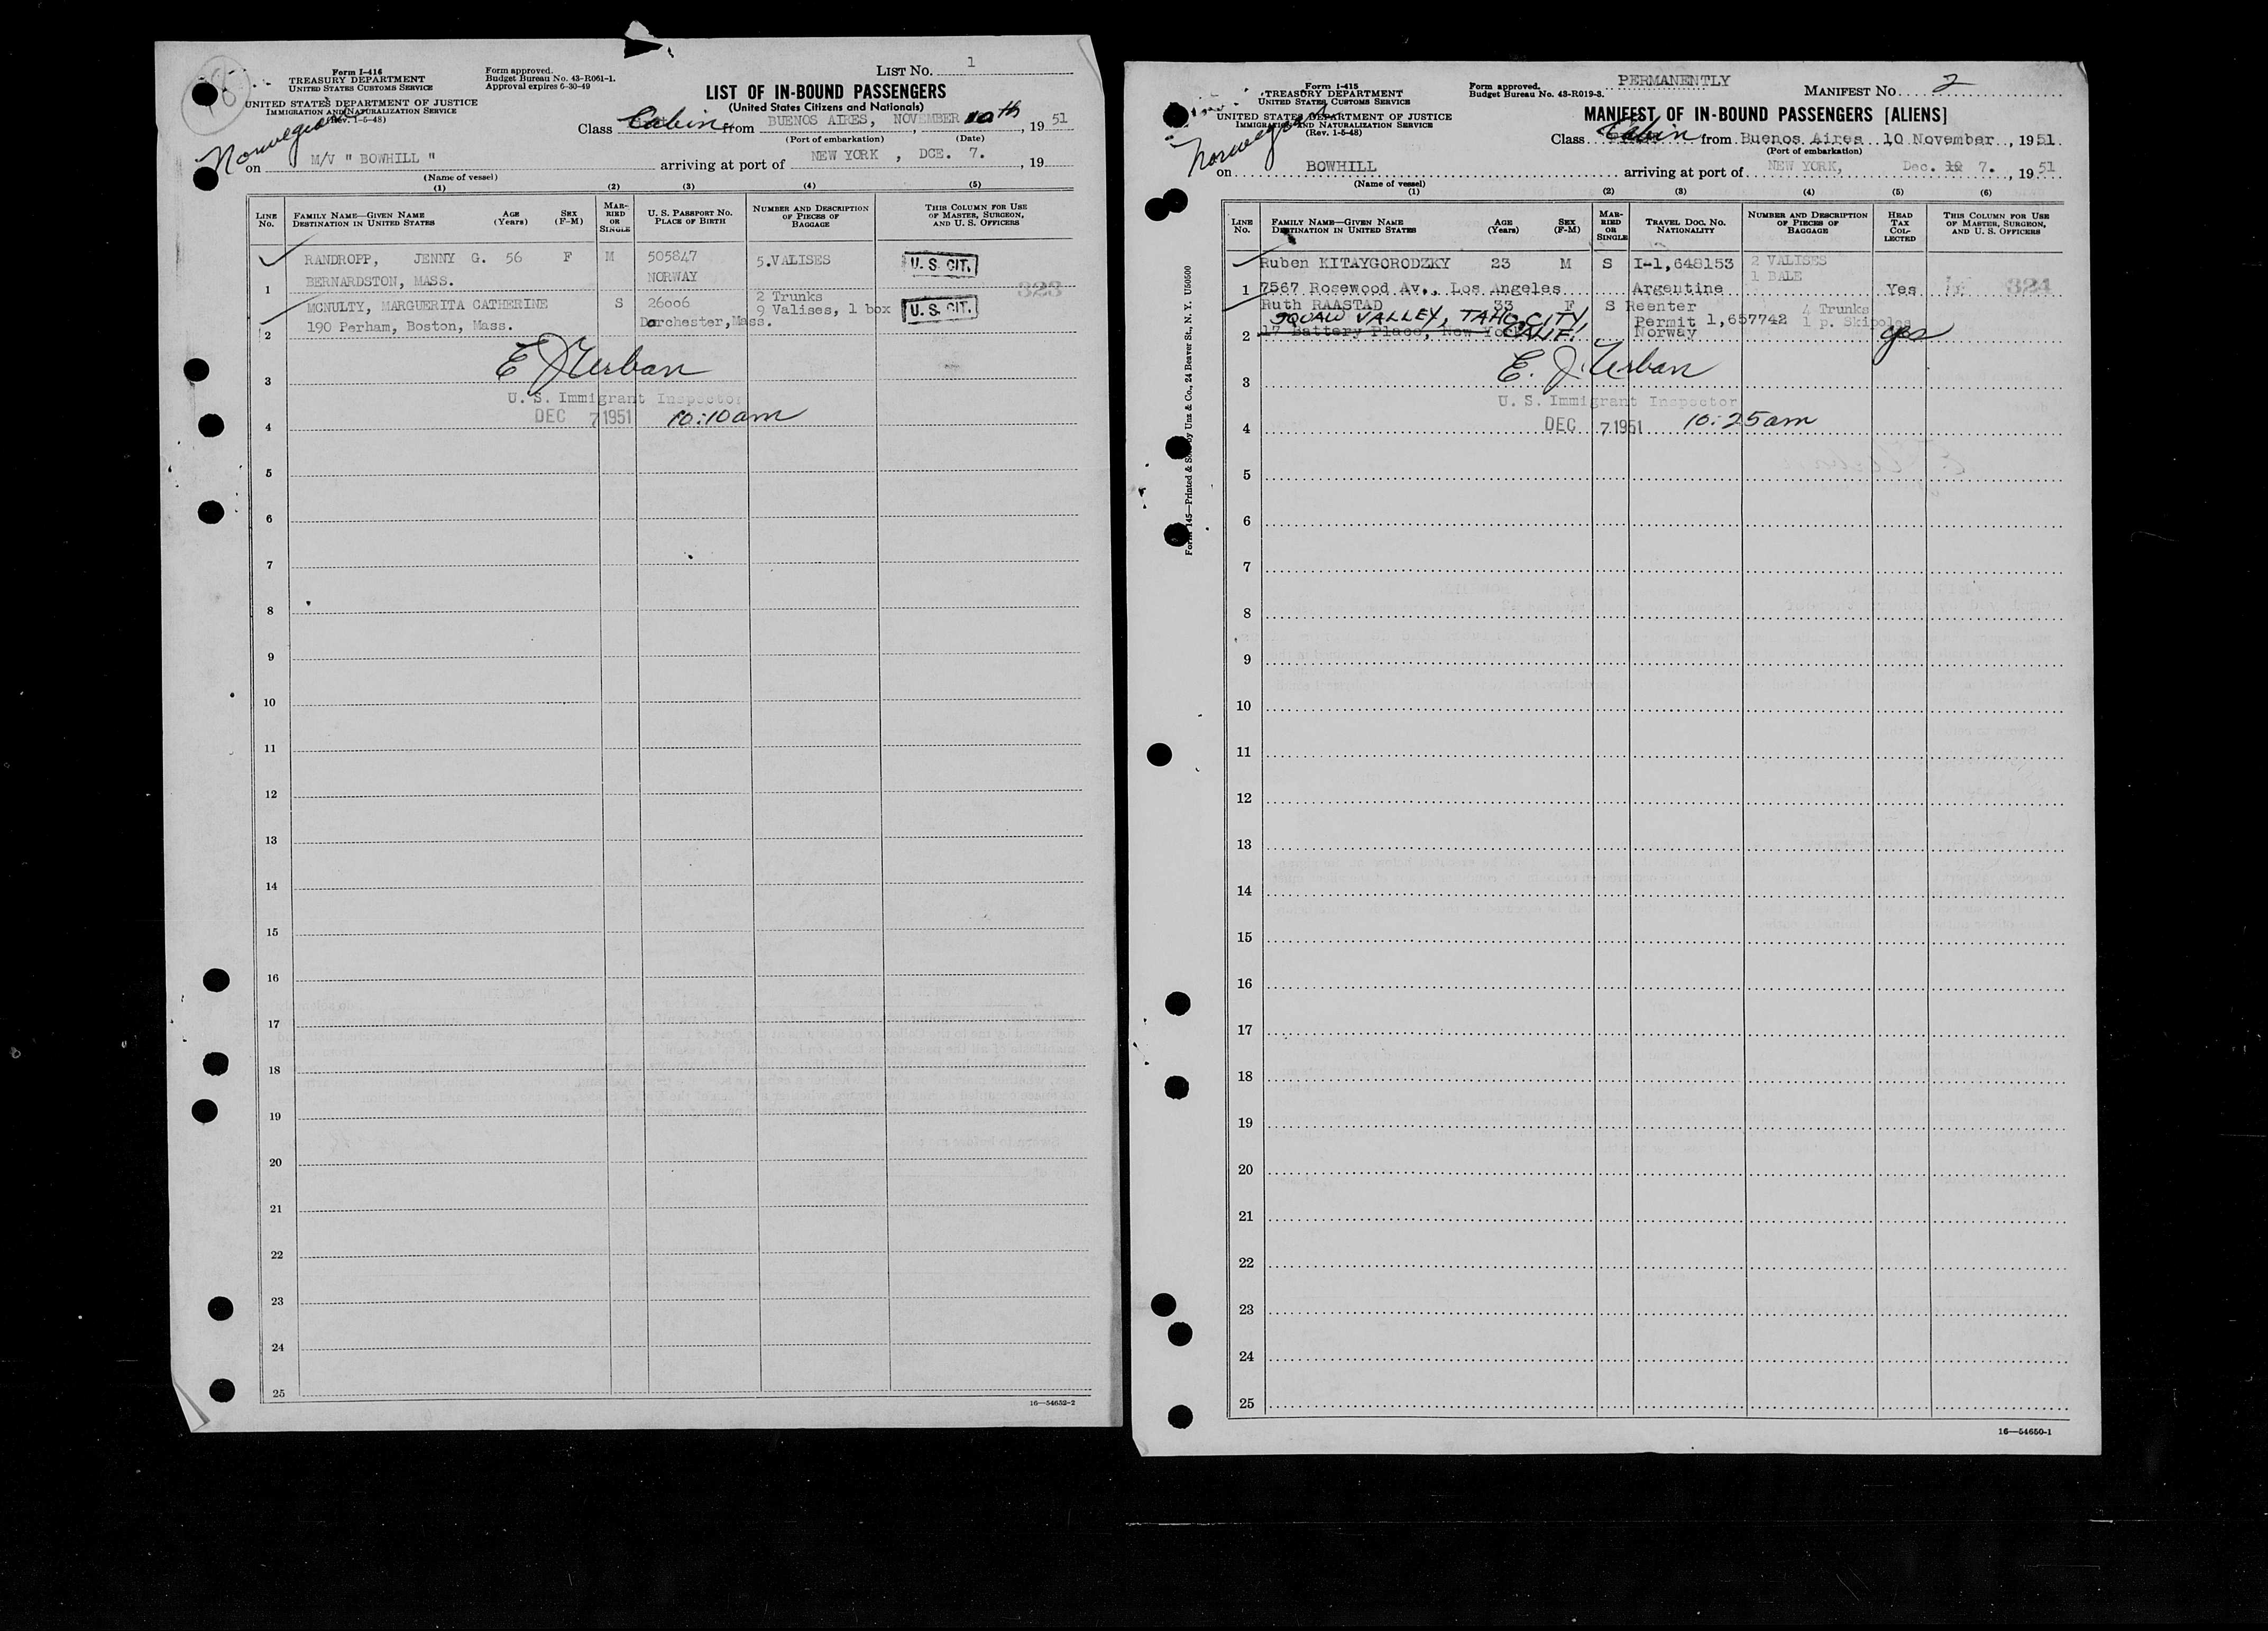 Form I-416
TREASURY DEPARTMENT
UNITED STATES CUSTOMS SERVICE
UNITED STATES DEPARTMENT OF JUSTICE
IMMIGRATION AND NATURALIZATION SERVICE
(Rev. 1-5-48)
Form approved.
Budget Bureau No. 43-R061-1.
Approval expires 6-30-49
LIST NO. 1
LIST OF IN-BOUND PASSENGERS
(United States Citizens and Nationals)
Class Cabin from BUENOS AIRES, NOVEMBER 10th, 1951
(Port of embarkation) (Date)
Norwegian
on M/V " BOWHILL " arriving at port of NEW YORK , DCE. 7. , 19
(Name of vessel)
(1) (2) (3) (4) (5)
LINE NO.
FAMILY NAME—GIVEN NAME
DESTINATION IN UNITED STATES
AGE (Years)
SEX (F-M)
MARRIED OR SINGLE
U. S. PASSPORT NO.
PLACE OF BIRTH
NUMBER AND DESCRIPTION OF PIECES OF BAGGAGE
THIS COLUMN FOR USE OF MASTER, SURGEON, AND U. S. OFFICERS
RANDROPP, JENNY G. 56 F M 505847 5.VALISES U. S. CIT.
1 BERNARDSTON, MASS. NORWAY 323
MCNULTY, MARGUERITA CATHERINE S 26006 2 Trunks
9 Valises, 1 box U. S. CIT.
2 190 Perham, Boston, Mass. Dorchester, Mass.
E J Urban
3
U. S. Immigrant Inspector
4 DEC 7 1951 10:10am
5
6
7
8
9
10
11
12
13
14
15
16
17
18
19
20
21
22
23
24
25
16—54652-2
Form I-415
TREASURY DEPARTMENT
UNITED STATES CUSTOMS SERVICE
UNITED STATES DEPARTMENT OF JUSTICE
IMMIGRATION AND NATURALIZATION SERVICE
(Rev. 1-5-48)
Form approved.
Budget Bureau No. 43-R019-3.
PERMANENTLY
MANIFEST NO. 2
MANIFEST OF IN-BOUND PASSENGERS [ALIENS]
Class Cabin from Buenos Aires 10 November, 1951
(Port of embarkation)
Norwegian
on BOWHILL arriving at port of NEW YORK, Dec. 10 7. , 1951
(Name of vessel)
(1) (2) (3) (4) (5) (6)
LINE NO.
FAMILY NAME—GIVEN NAME
DESTINATION IN UNITED STATES
AGE (Years)
SEX (F-M)
MARRIED OR SINGLE
TRAVEL DOC. NO.
NATIONALITY
NUMBER AND DESCRIPTION OF PIECES OF BAGGAGE
HEAD TAX COLLECTED
THIS COLUMN FOR USE OF MASTER, SURGEON, AND U. S. OFFICERS
Ruben KITAYGORODZKY 23 M S I-1,648153 2 VALISES
1 BALE
1 7567 Rosewood Av., Los Angeles Argentine Yes 324
Ruth RAASTAD 33 F S Reenter 4 Trunks
SQUAW VALLEY, TAHO CITY, CALIF. Permit 1,657742 1 p. Skipoles
2 17 Battery Place, New York Norway yes
E. J. Urban
3
U. S. Immigrant Inspector
4 DEC 7 1951 10:25am
5
6
7
8
9
10
11
12
13
14
15
16
17
18
19
20
21
22
23
24
25
Form 145—Printed & Sold by Unz & Co., 24 Beaver St., N. Y. U50500
16—54650-1